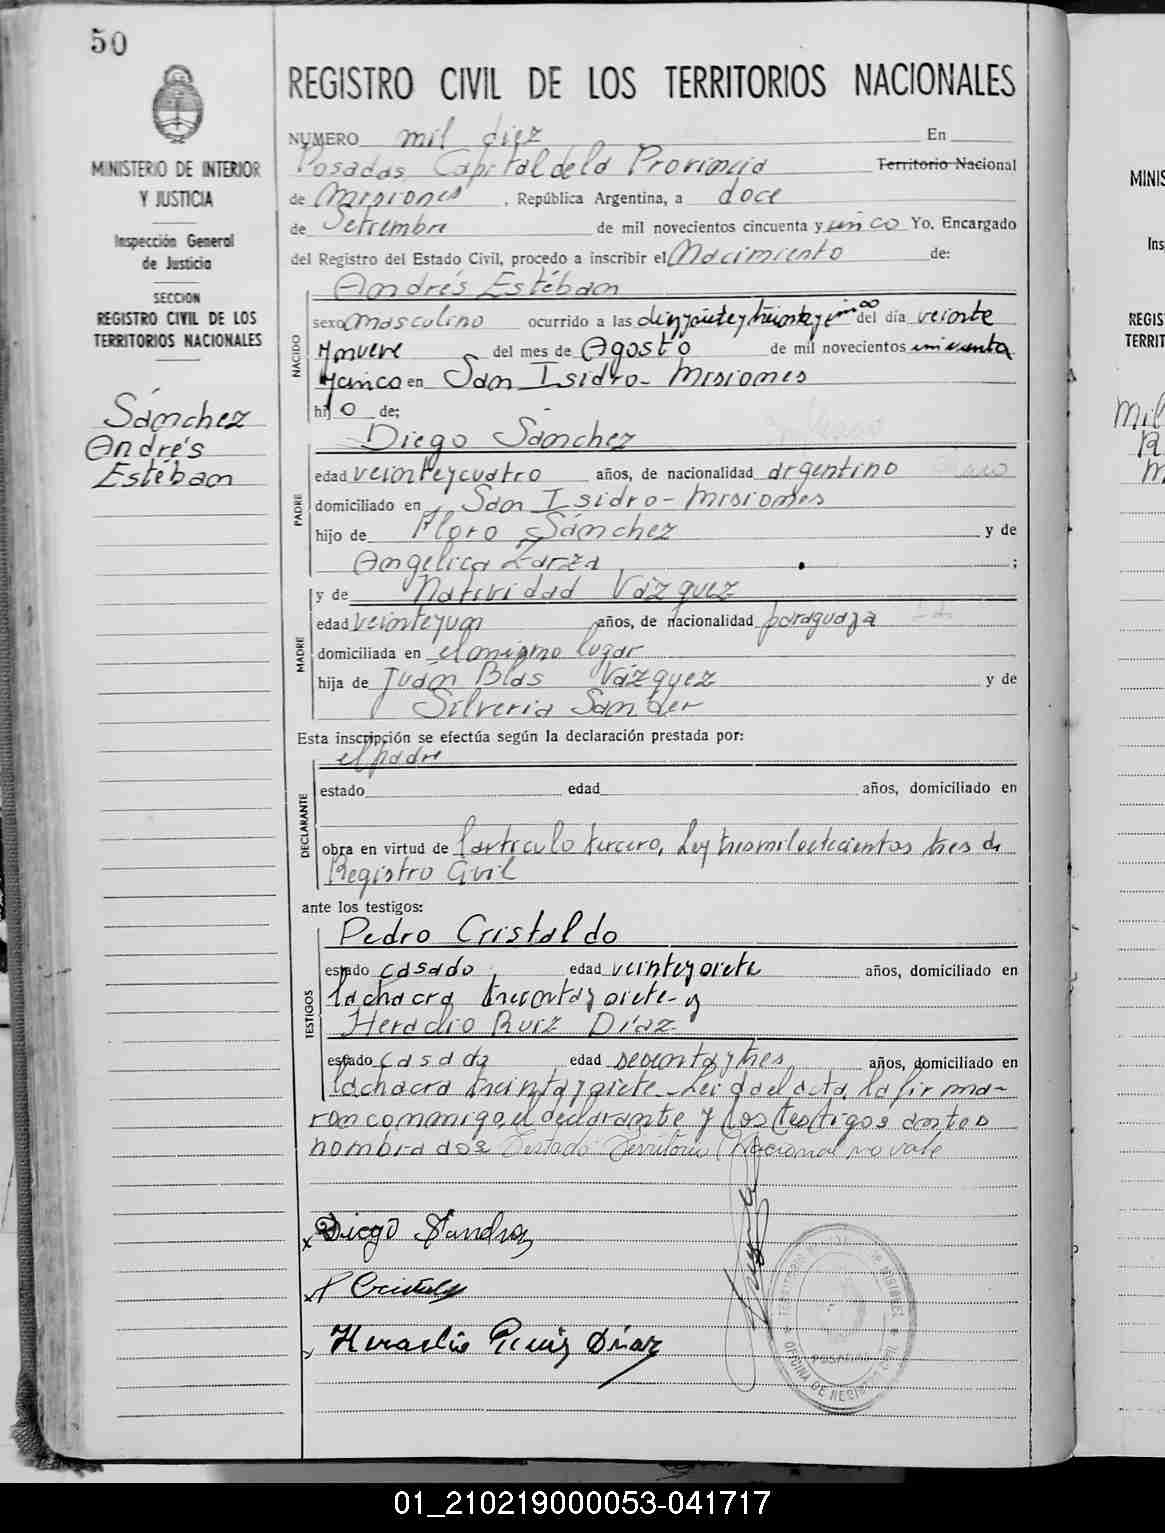 50
REGISTRO CIVIL DE LOS TERRITORIOS NACIONALES
MINISTERIO DE INTERIOR
Y JUSTICIA
Inspección General
de Justicia
SECCION
REGISTRO CIVIL DE LOS
TERRITORIOS NACIONALES
Sánchez
Andrés
Estéban
NUMERO mil diez En
Posadas Capital de la Provincia Territorio Nacional
de Misiones, República Argentina, a doce
de Setiembre de mil novecientos cincuenta y cinco Yo, Encargado
del Registro del Estado Civil, procedo a inscribir el Nacimiento de:
Andrés Estéban
NACIDO
sexo masculino ocurrido a las del día veinte
y nueve del mes de Agosto de mil novecientos cincuenta
y cinco en San Isidro - Misiones
hijo de;
Diego Sánchez
PADRE
edad veinteycuatro años, de nacionalidad argentino
domiciliado en San Isidro - Misiones
hijo de Floro Sánchez y de
Angélica Zarza ;
y de Natividad Vázquez
MADRE
edad veinteyun años, de nacionalidad paraguaya
domiciliada en el mismo lugar
hija de Juan Blas Vázquez y de
Silveria Sander
Esta inscripción se efectúa según la declaración prestada por:
el padre
DECLARANTE
estado edad años, domiciliado en
obra en virtud de l'artículo tercero, Ley tresmilochocientos tres de
Registro Civil
ante los testigos:
Pedro Cristaldo
TESTIGOS
estado casado, edad veinteysiete años, domiciliado en
la chacra treintaysiete - y
Heraclio Ruiz Díaz
estado casado edad sesentaytres años, domiciliado en
la chacra treintaysiete - Leida el acta, la firma-
ron conmigo, el declarante y los testigos antes
nombrados: Testado: Territorio Nacional no vale
x Diego Sandra
x P Cristaldo
Heraclio Ruiz Díaz
TERRITORIO DE MISIONES
POSADAS
OFICINA DE REGISTRO CIVIL
MINIS
Ins
REGIS
TERRIT
Mil
01_210219000053-041717